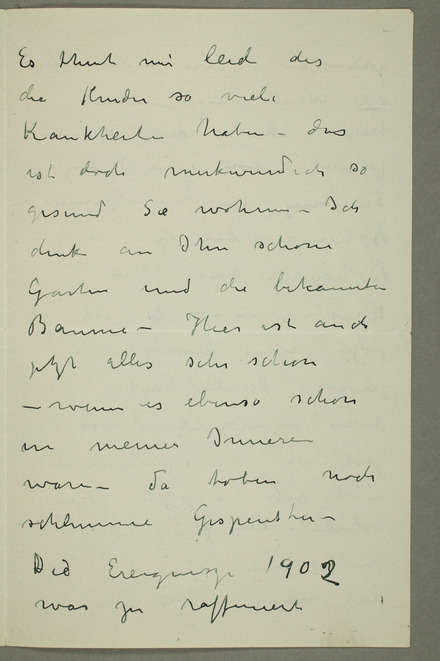 Es thut mir leid das
die Kinder so viele
Krankheiten haben – das
ist doch merkwurdich so
gesund Sie wohnen – Ich
denke an Ihre schöne
Garten und die bekannten
Baume – Hier ist auch
jetzt alles sehr schön
– wenn es ebenso schön
in meiner Inneren
ware – da toben noch
schlimme Gespenster –
Die Ereignisse 1902
war zu raffiniert